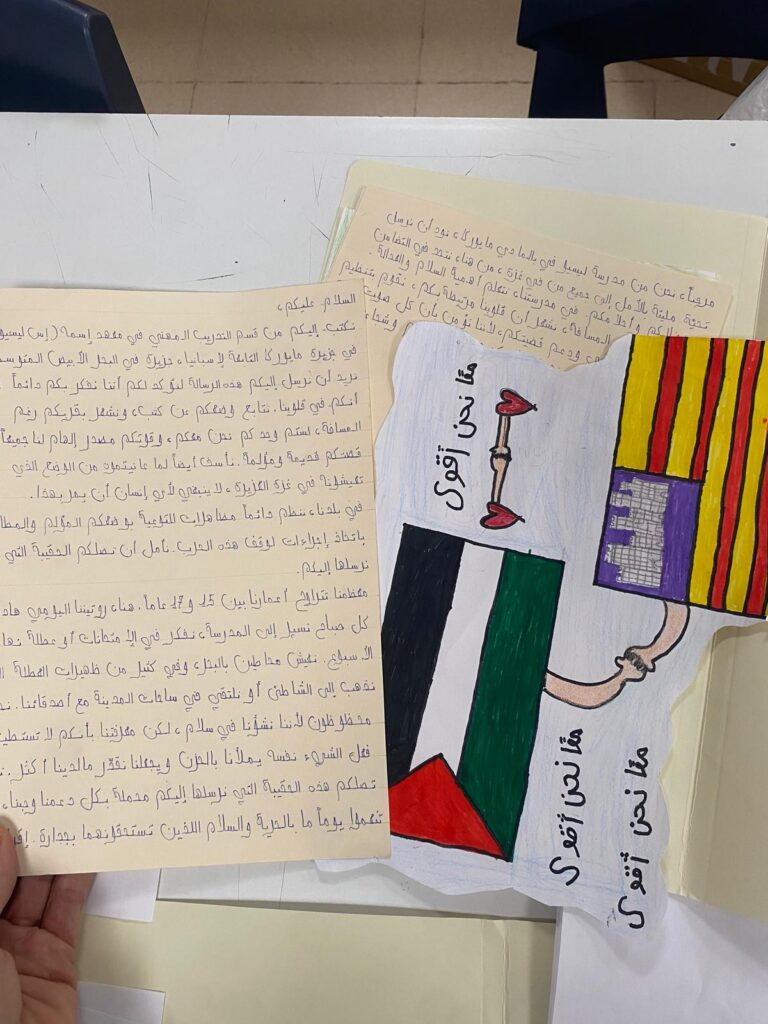 السلام عليكم،
نكتب إليكم من قسم التدريب المهني في معهد إسمه (إس ليسيو
في جزيرة مايوركا التابعة لإسبانيا، جزيرة في البحر الأبيض المتوسط
نريد أن نرسل إليكم هذه الرسالة لنؤكد لكم أننا نفكر بكم دائماً
أنكم في قلوبنا. نتابع وضعكم عن كثب، ونشعر بقربكم رغم
المسافة، لستم وحدكم نحن معكم، وقوتكم مصدر إلهام لنا جميعاً
قصتكم قديمة ومؤلمة. نأسف أيضاً لما عانيتموه من الوضع الذي
تعيشونه في غزة العزيزة، لا ينبغي لأي إنسان أن يمر بهذا.
في بلدنا، ننظم دائماً مظاهرات للتوعية بوضعكم المؤلم والمطا
باتخاذ إجراءات لوقف هذه الحرب. نأمل أن تصلكم الحقيبة التي
نرسلها إليكم.
معظمنا تتراوح أعمارنا بين 15 و17 عاماً. هنا، روتيننا اليومي هاد
كل صباح نسيل إلى المدرسة، نفكر في الإمتحانات أو عطلة نها
الأسبوع. نعيش محاطين بالبحر، وفي كثير من ظهيرات العطلة
نذهب إلى الشاطئ أو نلتقي في ساحات المدينة مع أصدقائنا.
محظوظون لأننا نشأنا في سلام، لكن معرفتنا بأنكم لا تستطيـ
فعل الشيء نفسه يملأنا بالحزن ويجعلنا نقدّر مالدينا أكثر.
تصلكم هذه الحقيبة التي نرسلها إليكم محملة بكل دعمنا وحبنا،
تنعموا يوماً ما بالحرية والسلام اللذين تستحقونهما بجدارة.
مرحباً، نحن من مدرسة ليسيو في بالما دي مايوركا، نود أن نرسل
تحية مليئة بالأمل إلى جميع من في غزة، من هنا، نتحد في التضامن
وأحلامكم. في مدرستنا، نتعلم أهمية السلام والعدالة.
المسافة، نشعر أن قلوبنا مرتبطة بكم، نقوم بتنظيم
ودعم قضيتكم، لأننا نؤمن بأن كل صوت
معًا نحن أقوى
معًا نحن أقوى
معًا نحن أقوى